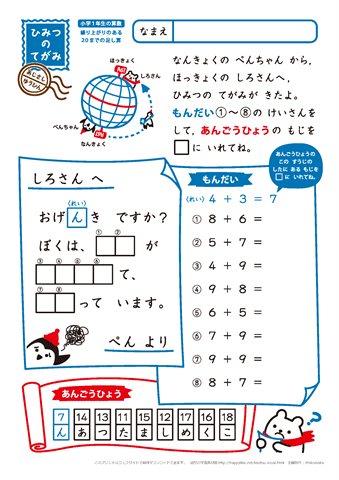 ひみつ
の
てがみ
小学1年生の算数
繰り上がりのある
20までの足し算
なまえ
あじさし
ゆうびん
ほっきょく
しろさん
ぺんちゃん
なんきょく
なんきょくの ぺんちゃん から,
ほっきょくの しろさんへ,
ひみつの てがみが きたよ。
もんだい①〜⑧の けいさんを
して, あんごうひょうの もじを
□に いれてね。
あんごうひょうの
この すうじの
したに ある もじを
□に いれてね。
しろさん へ
(れい)
おげんき ですか?
① ②
ぼくは、□□ が
③ ④ ⑤ ⑥
□□□□て、
⑦ ⑧
□□って います。
ぺん より
もんだい
(れい) 4 + 3 = 7
① 8 + 6 =
② 5 + 7 =
③ 4 + 9 =
④ 9 + 8 =
⑤ 6 + 5 =
⑥ 7 + 9 =
⑦ 9 + 9 =
⑧ 8 + 7 =
あんごうひょう
7 14 13 11 15 12 17 16 18
ん あ つ た ま し め く こ